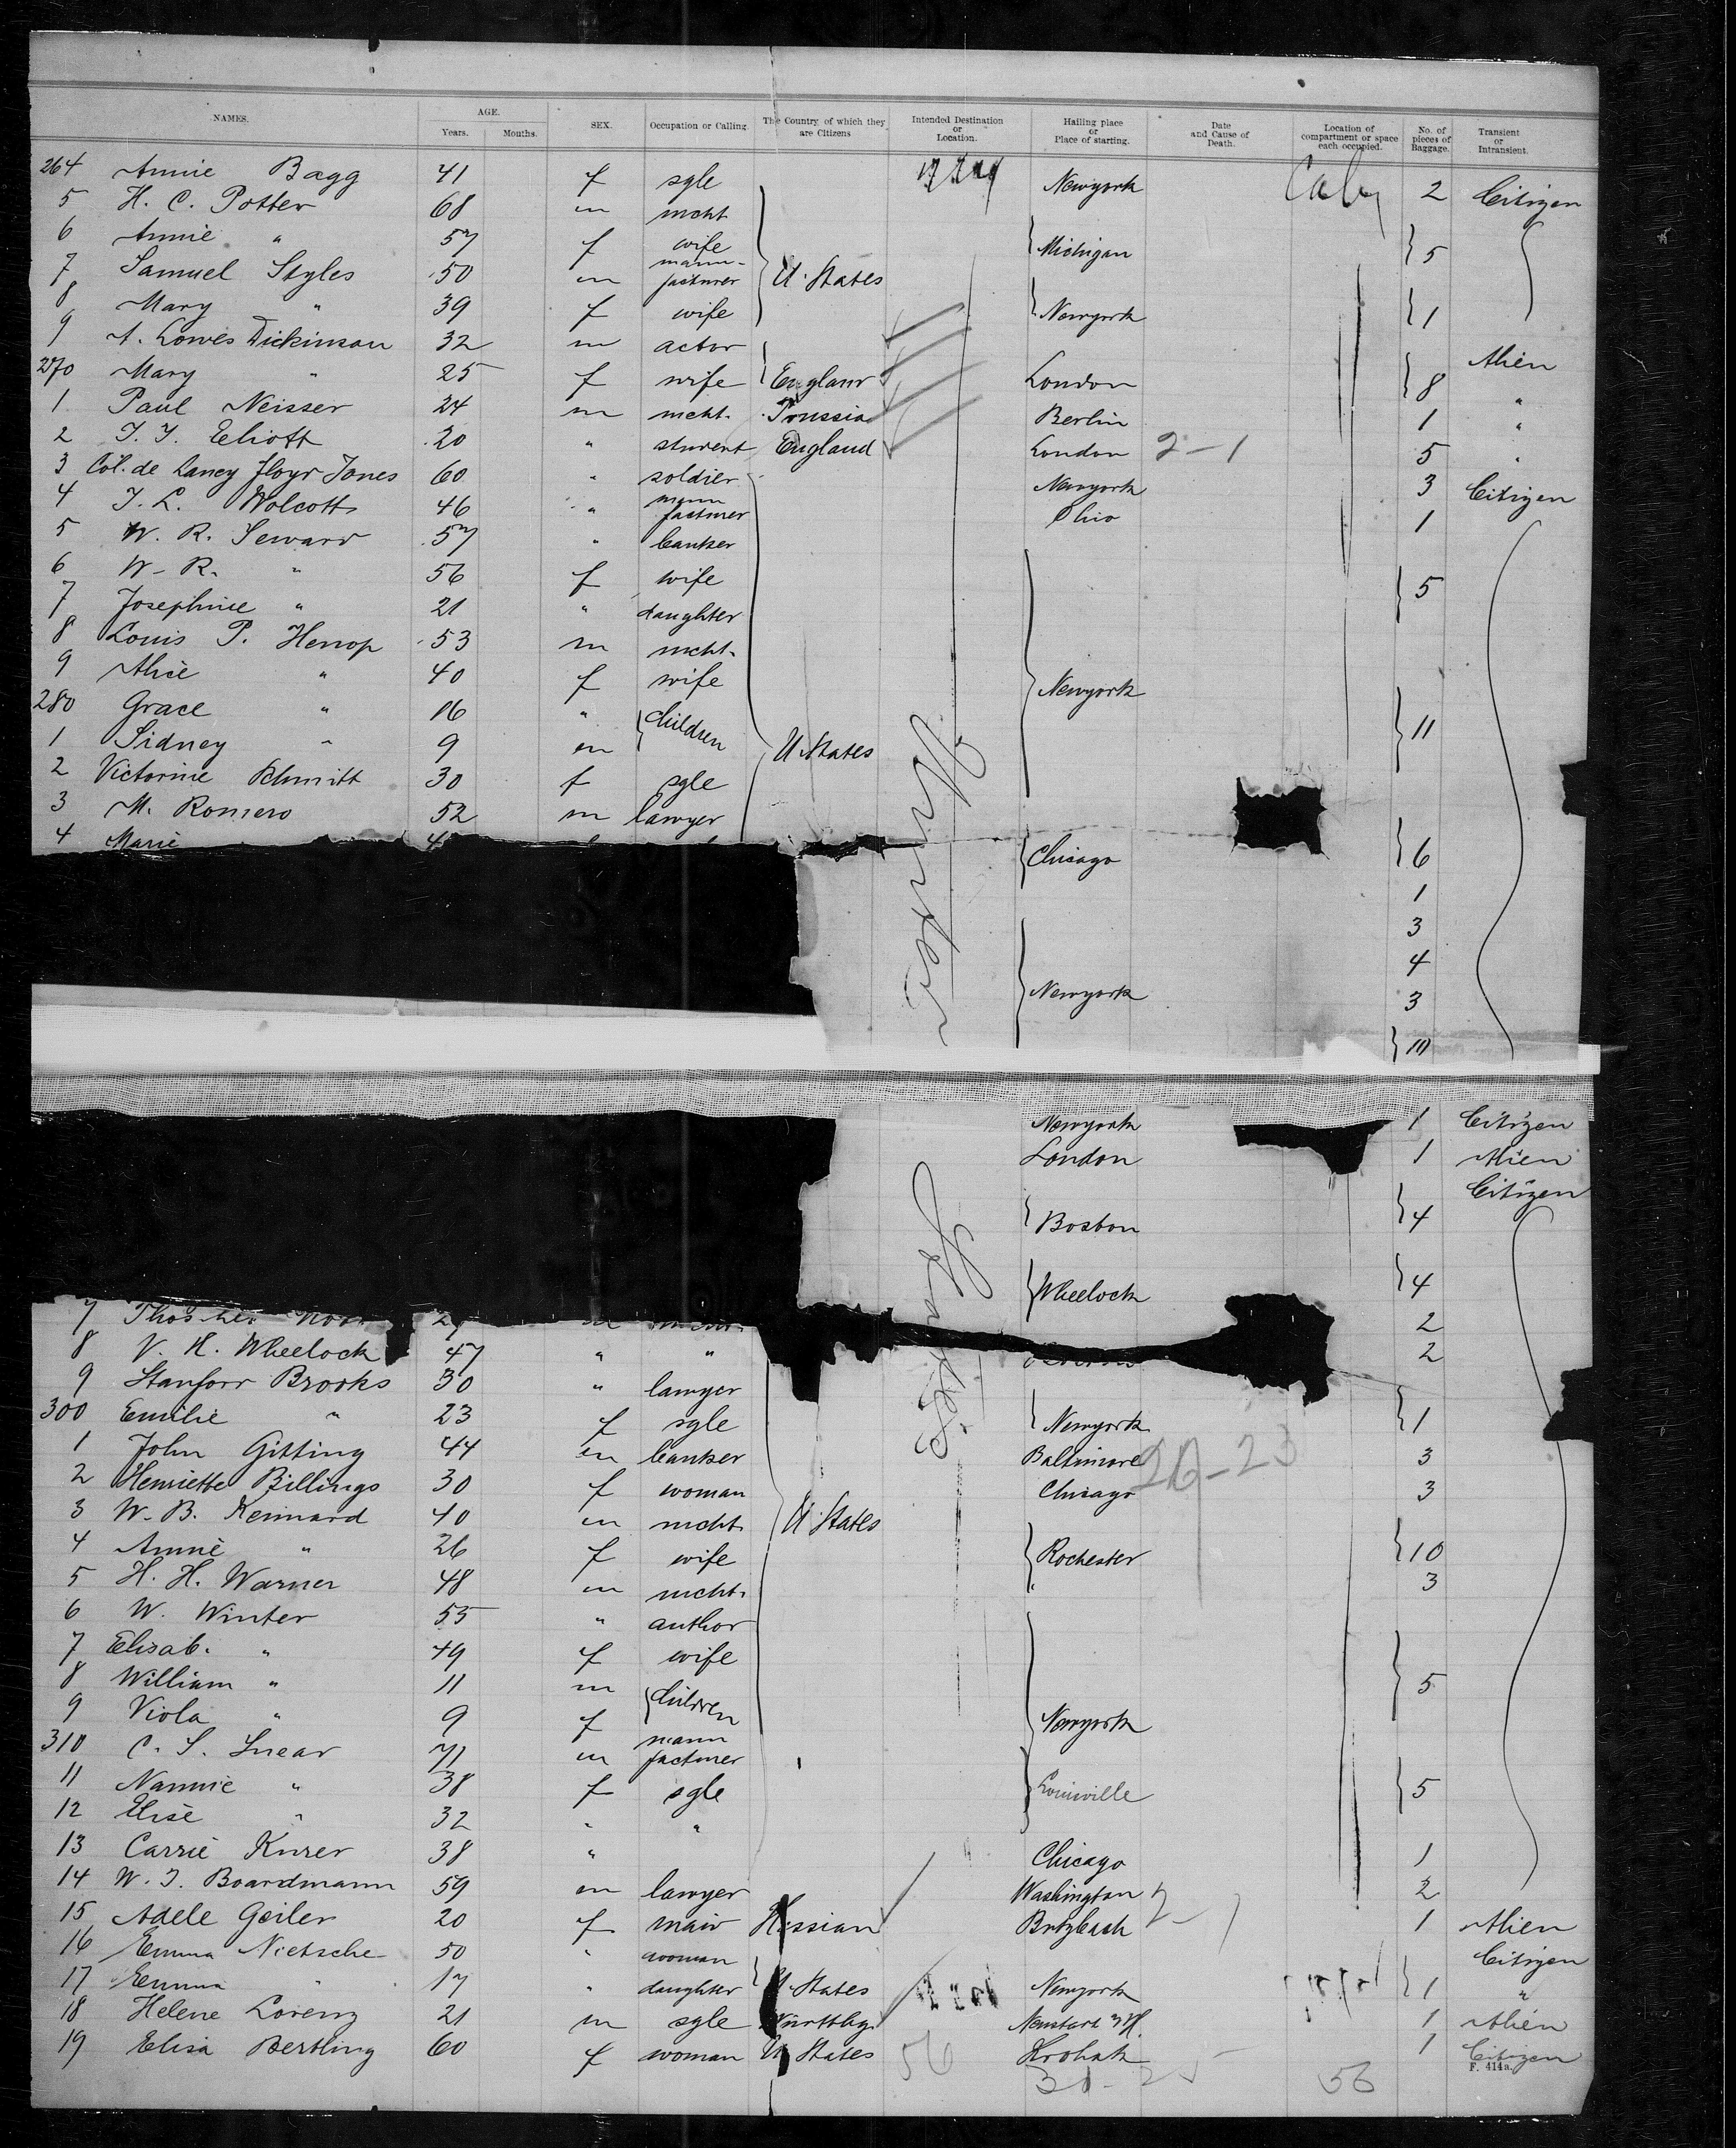 NAMES. AGE. SEX. Occupation or Calling. The Country, of which they are Citizens Intended Destination or Location. Hailing place or Place of starting. Date and Cause of Death. Location of compartment or space each occupied. No. of pieces of Baggage. Transient or Intransient.
Years. Months.
264 Annie Bagg 41 f sgle Newyork 2 Citizen
5 H. C. Potter 68 m mcht
6 Annie " 57 f wife Michigan 5
7 Samuel Styles 50 m manu-facturer U. States
8 Mary " 39 f wife Newyork 1
9 A. Lowes Dickinson 32 m actor
270 Mary " 25 f wife England London 8 Alien
1 Paul Neisser 24 m mcht. Prussia Berlin 1 "
2 T. Y. Eliott 20 " student England London 2-1 5 "
3 Col. de Lancy Floyd Jones 60 " soldier Newyork 3 Citizen
4 J. L. Wolcott 46 " manufacturer Ohio 1
5 W. R. Seward 57 " banker
6 W. R. " 56 f wife 5
7 Josephine " 21 " daughter
8 Louis P. Henop 53 m mcht.
9 Alice " 40 f wife Newyork
280 Grace " 16 " children 11
1 Sidney " 9 m U. States
2 Victorine Schmitt 30 f sgle
3 M. Romero 52 m lawyer
4 Marie Chicago 6
1
3
4
Newyork 3
10
Newyork 1 Citizen
London 1 Alien
Citizen
Boston 4
Wheelock 4
7 Thos 2
8 V. H. Wheelock 47 " " 2
9 Stanford Brooks 30 " lawyer
300 Emilie " 23 f sgle Newyork 1
1 John Gitting 44 m banker Baltimore 3
2 Henriette Billings 30 f woman Chicago 3
3 W. B. Kennard 40 m mcht U. States
4 Annie " 26 f wife Rochester 10
5 H. H. Warner 48 m mcht. " 3
6 W. Winter 55 " author
7 Elisab. " 49 f wife
8 William " 11 m children 5
9 Viola " 9 f Newyork
310 C. S. Snead 71 m manufacturer
11 Nannie " 38 f sgle Louisville 5
12 Elise " 32 " "
13 Carrie Kurer 38 " Chicago 1
14 W. J. Boardmann 59 m lawyer Washington 2
15 Adele Geiler 20 f maid Hessian Butzbach 1 Alien
16 Emma Nietsche 50 " woman Citizen
17 Emma " 17 " daughter U. States Newyork 1 "
18 Helene Lorenz 21 m sgle Württbg. 1 Alien
19 Elisa Bertling 60 f woman U States 1 Citizen
56 31-25 56 F. 414a.